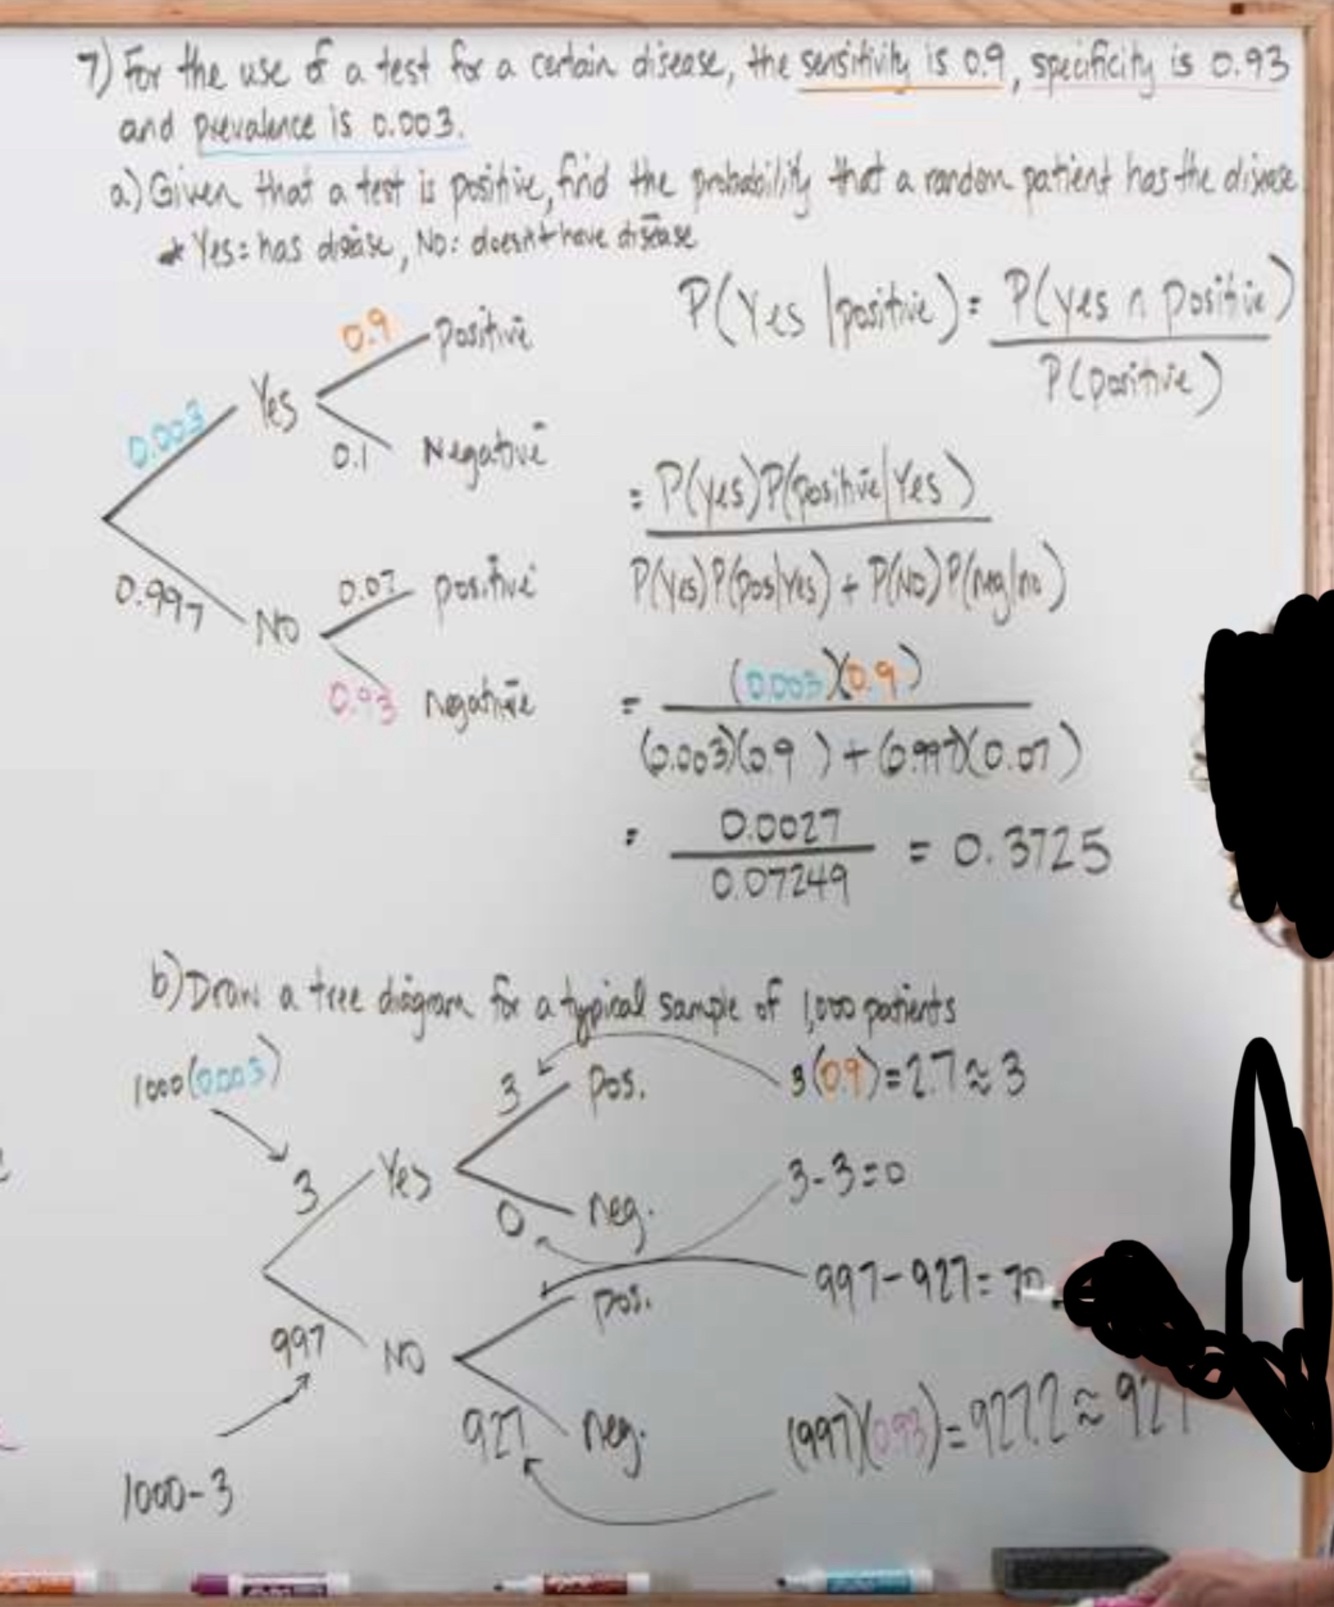 7) For the use of a test for a certain disease, the sensitivity is 0.9, specificity is 0.93
and prevalence is 0.003.
a) Given that a test is positive, find the probability that a random patient has the disease
* Yes = has disease, No: doesn't have disease
P(Yes | positive) = P(yes ∩ positive) / P(positive)
0.003 Yes 0.9 positive
0.1 Negative
0.997 NO 0.07 positive
0.93 negative
= P(yes)P(positive|Yes) / P(Yes)P(pos|Yes) + P(NO)P(neg|no)
= (0.003)(0.9) / (0.003)(0.9) + (0.997)(0.07)
= 0.0027 / 0.07249 = 0.3725
b) Draw a tree diagram for a typical sample of 1,000 patients
1000(0.003)
3 Yes 3 pos.
0 neg.
997 NO pos.
927 neg.
1000-3
3(0.9) = 2.7 ≈ 3
3-3=0
997-927=70
(997)(0.93)=927.2 ≈ 927